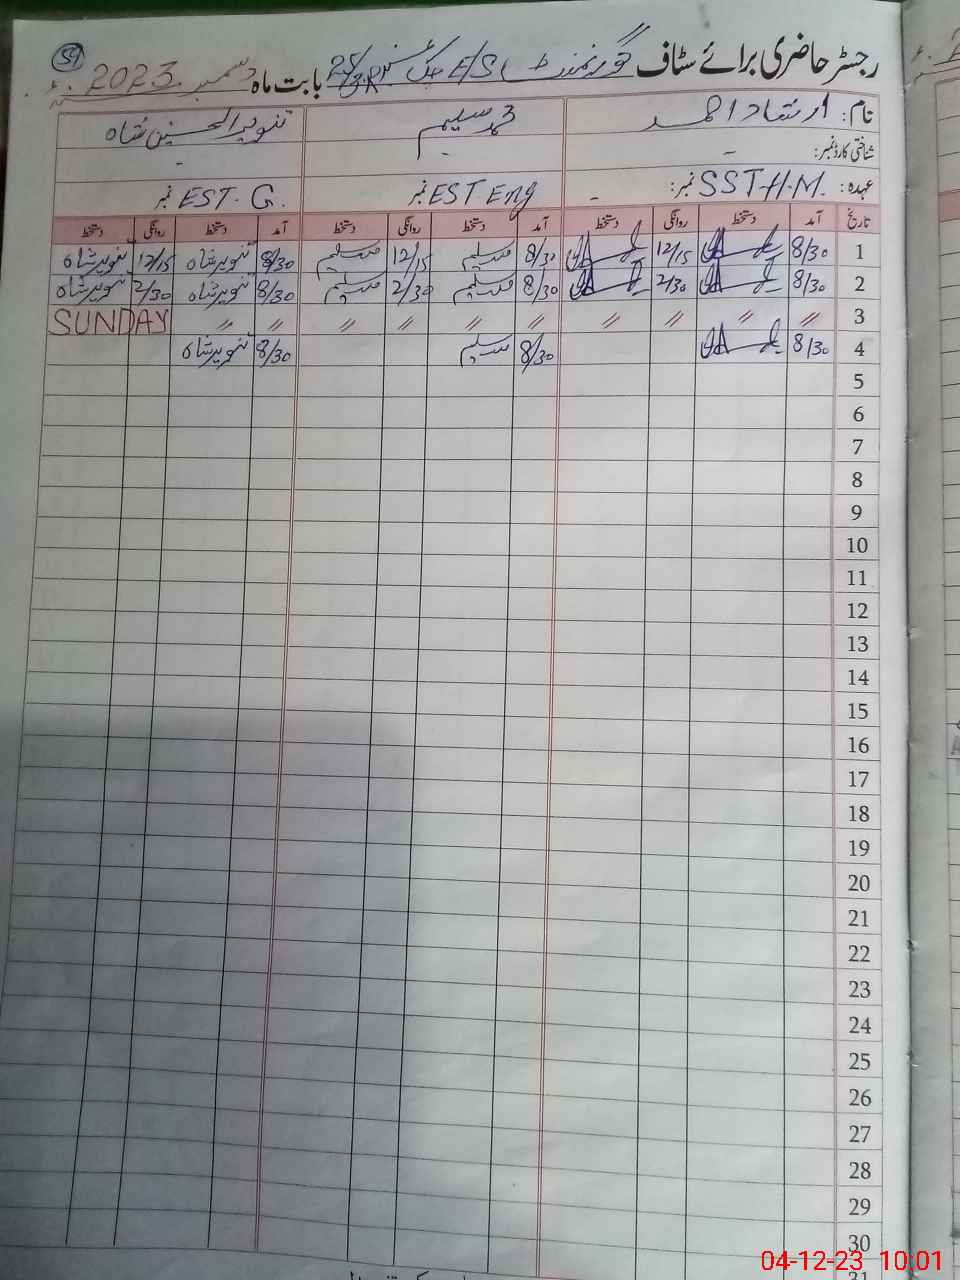 رجسٹر حاضری برائے سٹاف گورنمنٹ E/S چک نمبر 25/3R بابت ماہ دسمبر 2023ء
نام: ارشاد احمد محمد سلیم تنویر الحسنین شاہ
شناختی کارڈ نمبر: - - -
عہدہ: SST-H.M. نمبر: - EST Eng نمبر EST. G. نمبر
تاریخ آمد دستخط روانگی دستخط آمد دستخط روانگی دستخط آمد دستخط روانگی دستخط
1 8/30 12/15 8/30 سلیم 12/15 سلیم 8/30 تنویر شاہ 12/15 تنویر شاہ
2 8/30 2/30 8/30 سلیم 2/30 سلیم 8/30 تنویر شاہ 2/30 تنویر شاہ
3 〃 〃 〃 〃 〃 〃 〃 〃 〃 〃 SUNDAY
4 8/30 8/30 سلیم 8/30 تنویر شاہ
5
6
7
8
9
10
11
12
13
14
15
16
17
18
19
20
21
22
23
24
25
26
27
28
29
30
31
04-12-23 10:01